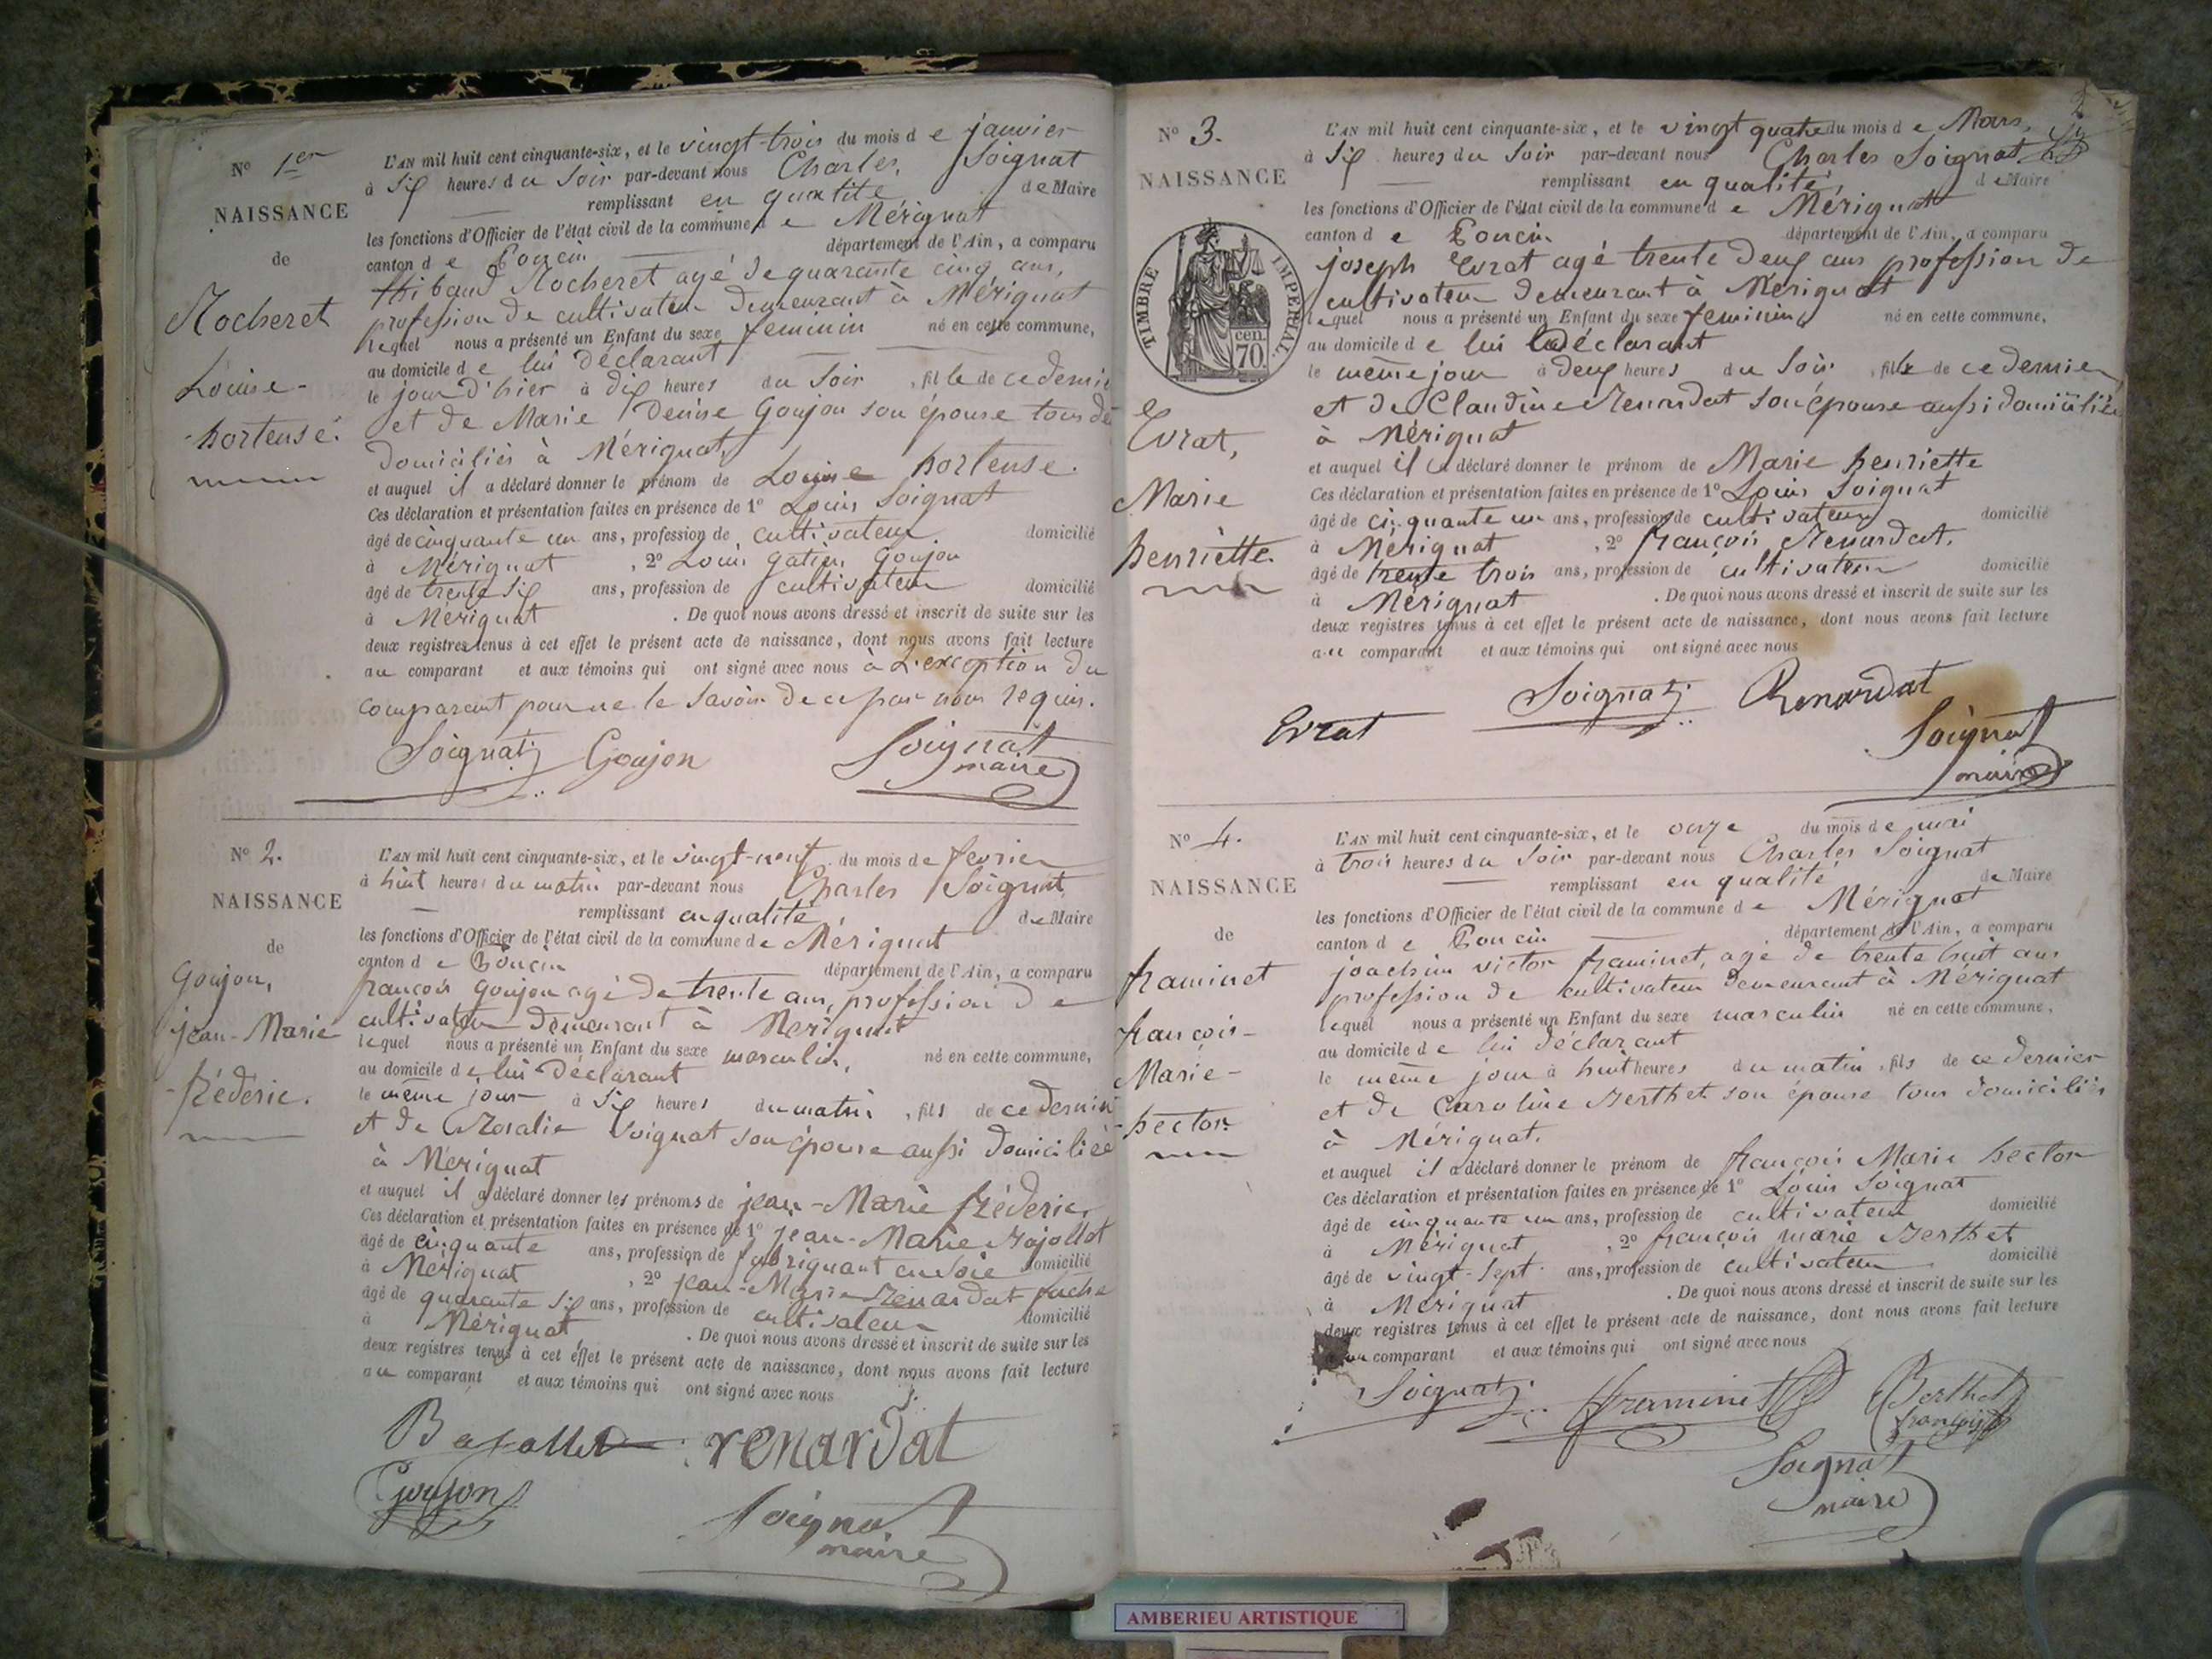 N° 1er
NAISSANCE
de
Rocheret
Louise-
hortense.
L'AN mil huit cent cinquante-six, et le vingt-trois du mois de janvier
à six heures du soir par-devant nous Charles Soignat
remplissant en qualité de Maire
les fonctions d'Officier de l'état civil de la commune de Mérignat
canton de Poncin département de l'Ain, a comparu
thibaud Rocheret agé de quarante cinq ans,
profession de cultivateur demeurant à Mérignat
lequel nous a présenté un Enfant du sexe feminin né en cette commune,
au domicile de lui déclarant
le jour d'hier à dix heures du soir, fille de ce dernier
et de Marie Denise Goujon son épouse tous de
domiciliés à Mérignat
et auquel il a déclaré donner le prénom de Louise hortense.
Ces déclaration et présentation faites en présence de 1° Louis Soignat
âgé de cinquante un ans, profession de cultivateur domicilié
à Mérignat, 2° Louis gatien Goujon
âgé de trente six ans, profession de cultivateur domicilié
à Mérignat. De quoi nous avons dressé et inscrit de suite sur les
deux registres tenus à cet effet le présent acte de naissance, dont nous avons fait lecture
au comparant et aux témoins qui ont signé avec nous à L'exception du
comparant pour ne le savoir de ce par nous requis.
Soignat Goujon Soignat
maire
N° 2.
NAISSANCE
de
Goujon,
jean-Marie
-fréderic.
L'AN mil huit cent cinquante-six, et le vingt-neuf du mois de fevrier
à huit heures du matin par-devant nous Charles Soignat
remplissant en qualité de Maire
les fonctions d'Officier de l'état civil de la commune de Mérignat
canton de Poncin département de l'Ain, a comparu
françois Goujon agé de trente ans, profession de
cultivateur demeurant à Merignat
lequel nous a présenté un Enfant du sexe masculin, né en cette commune,
au domicile de lui déclarant
le même jour à six heures du matin, fils de ce dernier
et de Rosalie Soignat son épouse aussi domiciliée
à Merignat
et auquel il a déclaré donner les prénoms de jean-Marie fréderic,
Ces déclaration et présentation faites en présence de 1° jean-Marie Bajollet
âgé de cinquante ans, profession de fabriquant en soie domicilié
à Merignat, 2° jean-Marie Renardat fache
âgé de quarante six ans, profession de cultivateur domicilié
à Mérignat. De quoi nous avons dressé et inscrit de suite sur les
deux registres tenus à cet effet le présent acte de naissance, dont nous avons fait lecture
au comparant et aux témoins qui ont signé avec nous
Bajollet renardat
Goujon Soignat
maire
N° 3.
NAISSANCE
TIMBRE IMPERIAL.
cen.
70
Evrat,
Marie
henriette.
L'AN mil huit cent cinquante-six, et le vingt quatre du mois de Mars,
à six heures du soir par-devant nous Charles Soignat
remplissant en qualité de Maire
les fonctions d'Officier de l'état civil de la commune de Mérignat
canton de Poncin département de l'Ain, a comparu
joseph Evrat agé trente deux ans profession de
cultivateur demeurant à Mérignat
lequel nous a présenté un Enfant du sexe feminin né en cette commune,
au domicile de lui déclarant
le même jour à deux heures du soir, fille de ce dernier,
et de Claudine Renardat son épouse aussi domiciliée
à Mérignat
et auquel il a déclaré donner le prénom de Marie henriette
Ces déclaration et présentation faites en présence de 1° Louis Soignat
âgé de cinquante un ans, profession de cultivateur domicilié
à Mérignat, 2° françois Renardat.
âgé de trente trois ans, profession de cultivateur domicilié
à Mérignat. De quoi nous avons dressé et inscrit de suite sur les
deux registres tenus à cet effet le présent acte de naissance, dont nous avons fait lecture
au comparant et aux témoins qui ont signé avec nous
Evrat Soignat Renardat
Soignat
maire
N° 4.
NAISSANCE
de
framinet
françois-
Marie-
hector.
L'AN mil huit cent cinquante-six, et le onze du mois de mai
à trois heures du soir par-devant nous Charles Soignat
remplissant en qualité de Maire
les fonctions d'Officier de l'état civil de la commune de Mérignat
canton de Poncin département de l'Ain, a comparu
joachim victor framinet, agé de trente huit ans
profession de cultivateur demeurant à Mérignat
lequel nous a présenté un Enfant du sexe masculin né en cette commune,
au domicile de lui déclarant
le même jour à huit heures du matin, fils de ce dernier
et de Caroline Berthet son épouse tous domiciliés
à Mérignat.
et auquel il a déclaré donner le prénom de françois Marie hector
Ces déclaration et présentation faites en présence de 1° Louis Soignat
âgé de cinquante un ans, profession de cultivateur domicilié
à Mérignat, 2° françois marie Berthet
âgé de vingt-sept ans, profession de cultivateur domicilié
à Mérignat. De quoi nous avons dressé et inscrit de suite sur les
deux registres tenus à cet effet le présent acte de naissance, dont nous avons fait lecture
au comparant et aux témoins qui ont signé avec nous
Soignat framinet Berthet
françois
Soignat
maire
AMBERIEU ARTISTIQUE